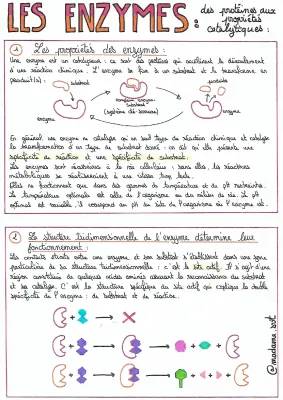 LES ENZYMES:
des protéines aux
propriétés
catalytiques:
1 Les propriétés des enzymes:
Une enzyme est un catalyseur: ce sont des protéines qui accélèrent le déroulement
d'une réaction chimique. L'enzyme se fixe à un substrat et le transforme en
produit(s):
substrat
produits
enzyme
complexe enzyme-
substrat
(système clé-serrure)
enzyme
En général, une enzyme ne catalyse qu'un seul type de réaction chimique et catalyse
la transformation d'un type de substrat donné: on dit qu'elle présente une
spécificité de réaction et une spécificité de substrat.
Les enzymes sont nécessaires à la vie cellulaire: sans elles, les réactions
métaboliques se réaliseraient à une vitesse trop lente.
Elles ne fonctionnent que dans des gammes de température et de pH restreintes.
La température optimale est celle de l'organisme ou du milieu de vie. Le pH
optimal est variable, il correspond au pH du site de l'organisme où l'enzyme est.
2 La structure tridimensionnelle de l'enzyme détermine leur
fonctionnement:
Les contacts étroits entre une enzyme et son substrat s'établissent dans une zone
particulière de sa structure tridimensionnelle: c'est le site actif. Il s'agit d'une
région constituée de quelques acides aminés assurant la reconnaissance du substrat
et sa catalyse. C'est la structure spécifique du site actif qui explique la double
spécificité de l'enzyme: de substrat et de réaction.
@madame.svt